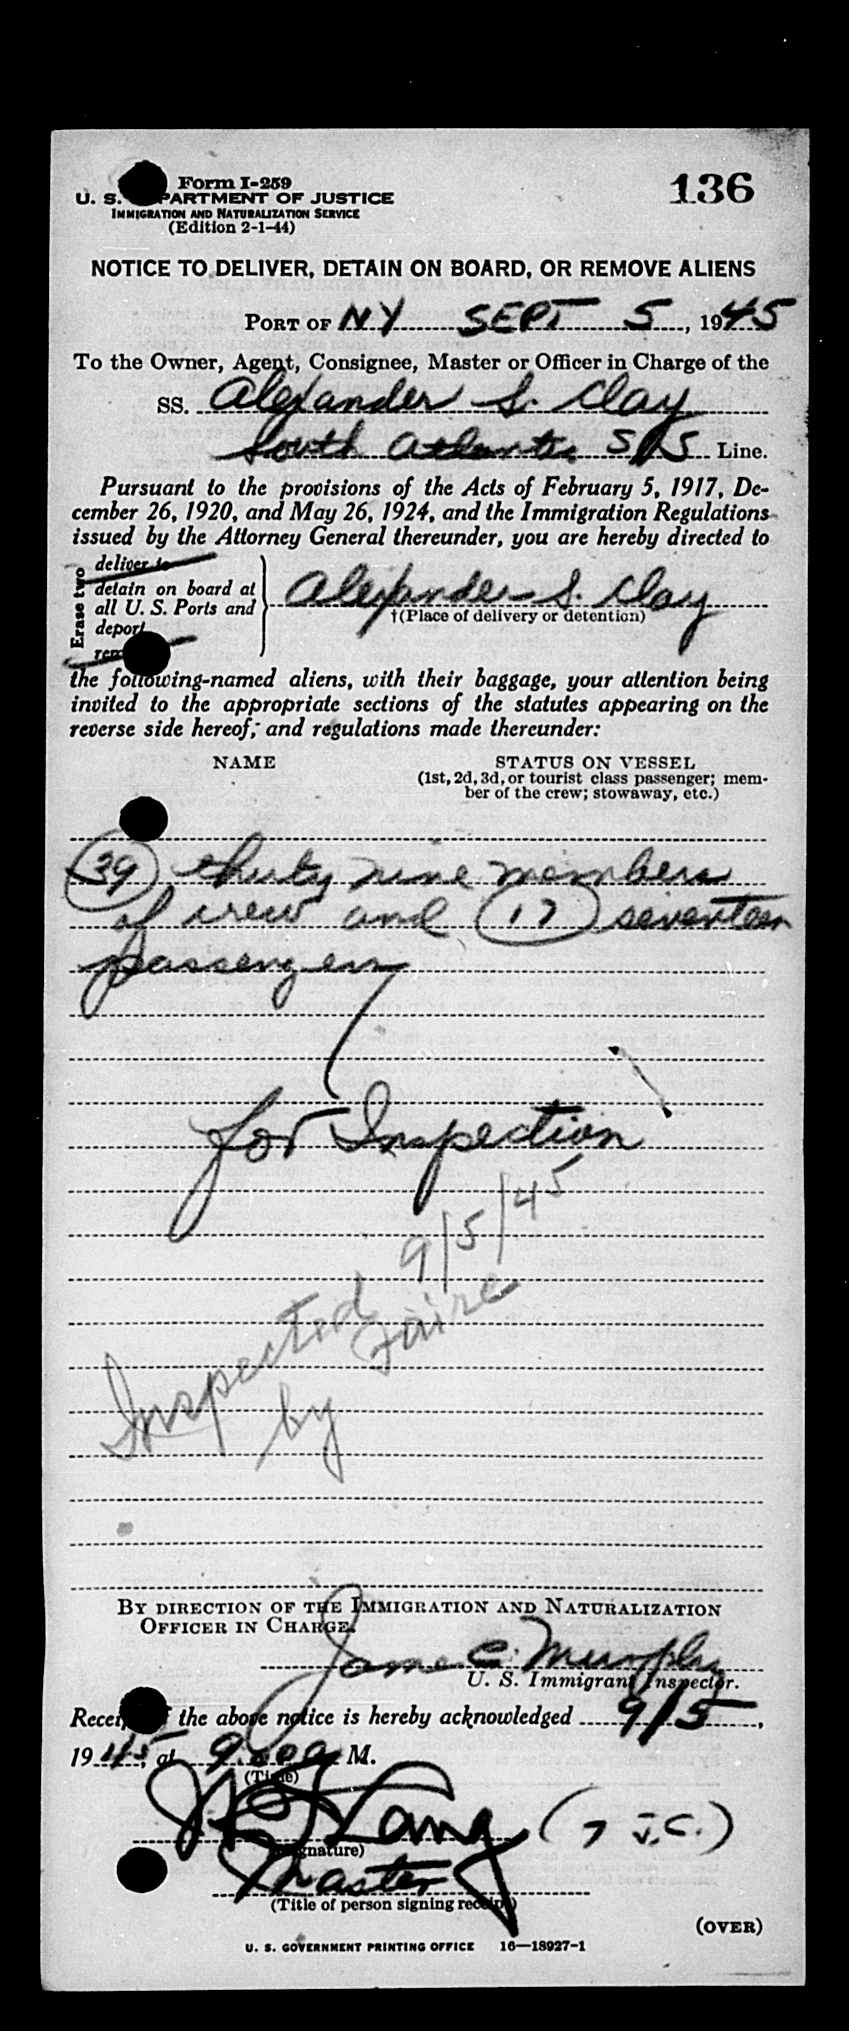 Form I-259
136
U. S. DEPARTMENT OF JUSTICE
IMMIGRATION AND NATURALIZATION SERVICE
(Edition 2-1-44)
NOTICE TO DELIVER, DETAIN ON BOARD, OR REMOVE ALIENS
PORT OF NY SEPT 5, 1945
To the Owner, Agent, Consignee, Master or Officer in Charge of the
SS. Alexander S. Clay
South Atlantic S/S Line.
Pursuant to the provisions of the Acts of February 5, 1917, De-
cember 26, 1920, and May 26, 1924, and the Immigration Regulations
issued by the Attorney General thereunder, you are hereby directed to
Erase two
deliver to
detain on board at
all U. S. Ports and
deport
Alexander S. Clay
†(Place of delivery or detention)
the following-named aliens, with their baggage, your attention being
invited to the appropriate sections of the statutes appearing on the
reverse side hereof, and regulations made thereunder:
NAME
STATUS ON VESSEL
(1st, 2d, 3d, or tourist class passenger; mem-
ber of the crew; stowaway, etc.)
(39) thirty nine members
of crew and (17) seventeen
passengers
for Inspection
9/5/45
Inspected
by
BY DIRECTION OF THE IMMIGRATION AND NATURALIZATION
OFFICER IN CHARGE.
James C. Murphy
U. S. Immigrant Inspector.
Receipt of the above notice is hereby acknowledged 9/5,
1945, at M.
(Time)
Lang
(Signature)
Master
(Title of person signing receipt)
(OVER)
U. S. GOVERNMENT PRINTING OFFICE 16—18927-1